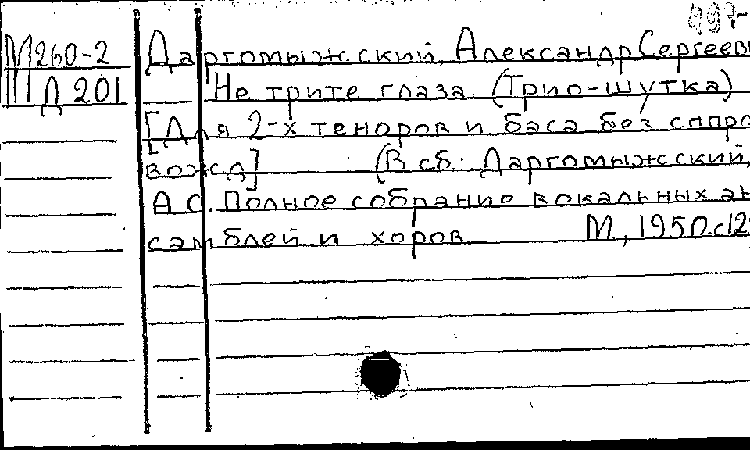 997-
М260-2 Даргомыжский, Александр Сергееви
Ш Д 201 Не трите глаза (Трио-шутка)
[Для 2-х теноров и баса без сопро
вожд] (В сб: Даргомыжский,
А С. Полное собрание вокальных ан
самблей и хоров М, 1950. с12